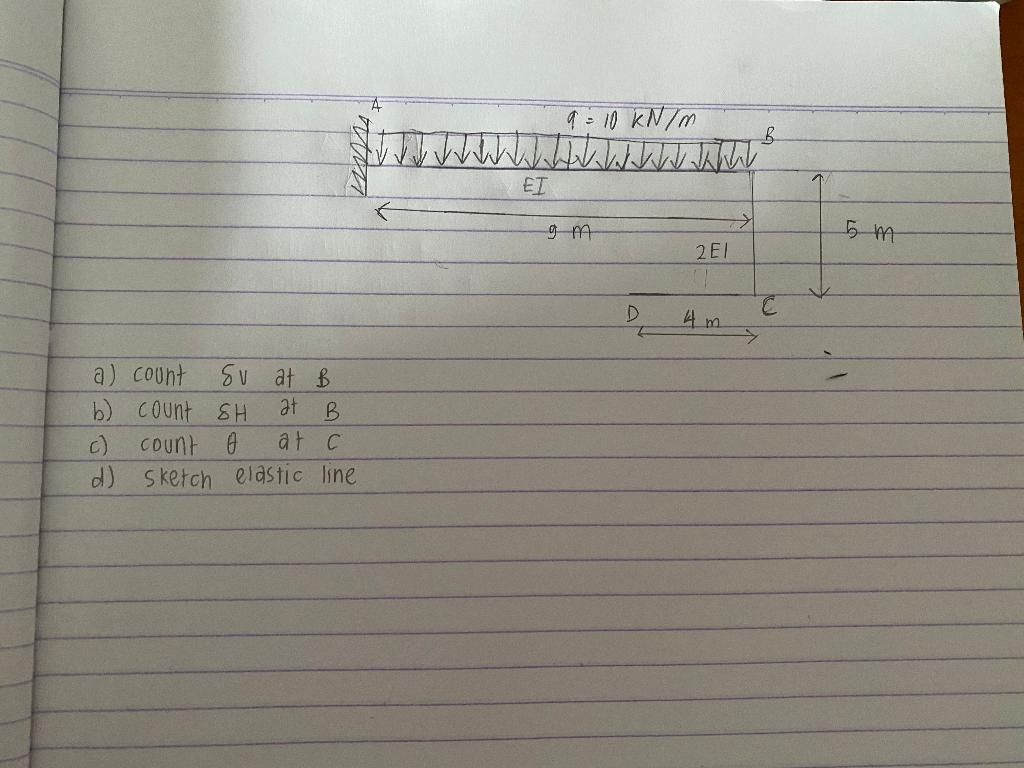 A
q = 10 kN/m
B
EI
9 m
5 m
2EI
D
4 m
C
a) count δv at B
b) count δH at B
c) count θ at C
d) sketch elastic line